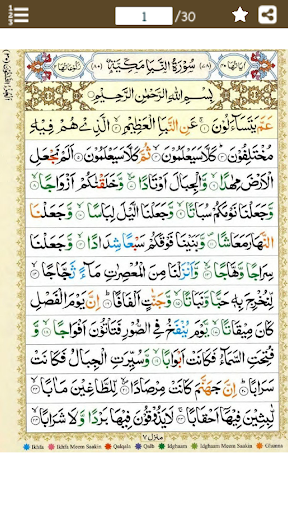 1 /30
اٰيَاتُهَا ٤٠ سُوْرَةُ النَّبَاِ مَكِّيَّةٌ رُكُوْعَاتُهَا ٢
بِسْمِ اللّٰهِ الرَّحْمٰنِ الرَّحِيْمِ
عَمَّ يَتَسَآءَلُوْنَ ۝ عَنِ النَّبَاِ الْعَظِيْمِ ۝ الَّذِيْ هُمْ فِيْهِ
مُخْتَلِفُوْنَ ۝ كَلَّا سَيَعْلَمُوْنَ ۝ ثُمَّ كَلَّا سَيَعْلَمُوْنَ ۝ اَلَمْ نَجْعَلِ
الْاَرْضَ مِهٰدًا ۝ وَّالْجِبَالَ اَوْتَادًا ۝ وَّخَلَقْنٰكُمْ اَزْوَاجًا ۝
وَّجَعَلْنَا نَوْمَكُمْ سُبَاتًا ۝ وَّجَعَلْنَا الَّيْلَ لِبَاسًا ۝ وَّجَعَلْنَا
النَّهَارَ مَعَاشًا ۝ وَّبَنَيْنَا فَوْقَكُمْ سَبْعًا شِدَادًا ۝ وَّجَعَلْنَا
سِرَاجًا وَّهَّاجًا ۝ وَّاَنْزَلْنَا مِنَ الْمُعْصِرٰتِ مَآءً ثَجَّاجًا ۝
لِّنُخْرِجَ بِهٖ حَبًّا وَّنَبَاتًا ۝ وَّجَنّٰتٍ اَلْفَافًا ۝ اِنَّ يَوْمَ الْفَصْلِ
كَانَ مِيْقَاتًا ۝ يَّوْمَ يُنْفَخُ فِي الصُّوْرِ فَتَاْتُوْنَ اَفْوَاجًا ۝ وَّ
فُتِحَتِ السَّمَآءُ فَكَانَتْ اَبْوَابًا ۝ وَّسُيِّرَتِ الْجِبَالُ فَكَانَتْ
سَرَابًا ۝ اِنَّ جَهَنَّمَ كَانَتْ مِرْصَادًا ۝ لِّلطَّاغِيْنَ مَاٰبًا ۝
لّٰبِثِيْنَ فِيْهَآ اَحْقَابًا ۝ لَا يَذُوْقُوْنَ فِيْهَا بَرْدًا وَّلَا شَرَابًا ۝
منزل ٧
Ikhfa Ikhfa Meem Saakin Qalqala Qalb Idghaam Idghaam Meem Saakin Ghunna